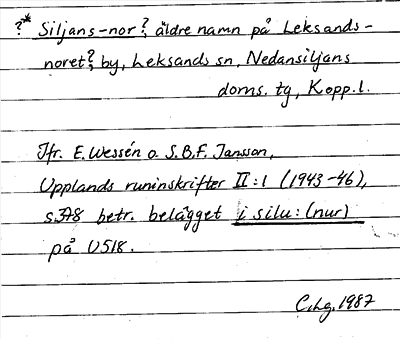 ?* Siljans-nor?, äldre namn på Leksands-
noret?, by, Leksands sn, Nedansiljans
doms. tg, Kopp.l.
Jfr. E. Wessén o. S.B.F. Jansson,
Upplands runinskrifter II:1 (1943-46),
s.378 betr. belägget i silu:(nur)
på U518.
C.Lg. 1987